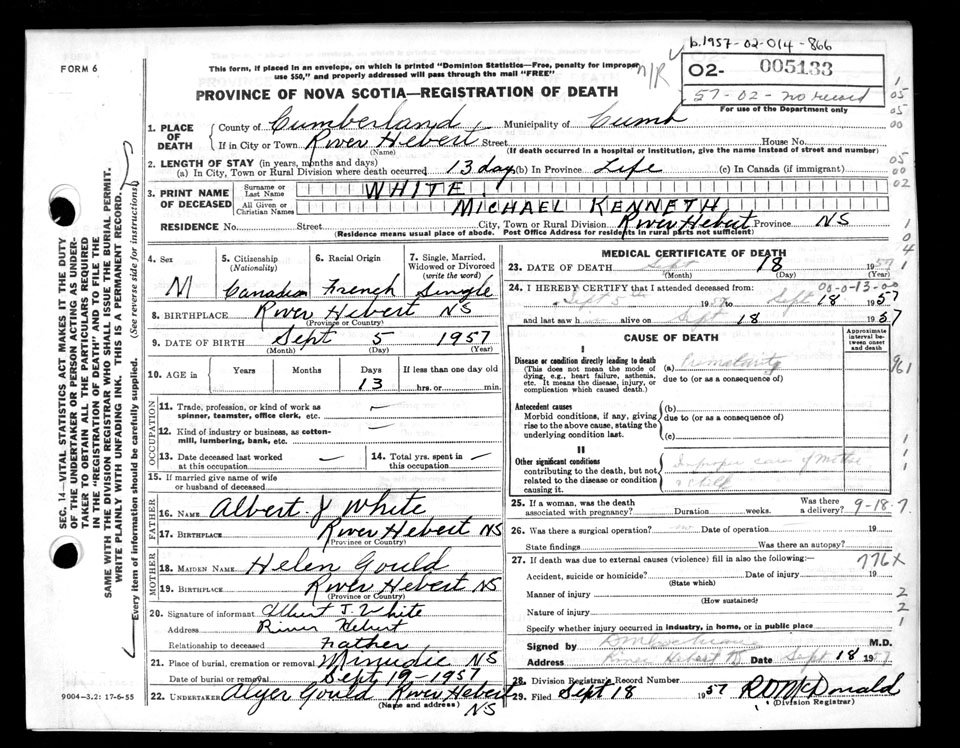 b.1957-02-014-866
FORM 6
This form, if placed in an envelope, on which is printed "Dominion Statistics—Free, penalty for improper
use $50," and properly addressed will pass through the mail "FREE"
n/R
02- 005133
57-02-no record
For use of the Department only
PROVINCE OF NOVA SCOTIA—REGISTRATION OF DEATH
1. PLACE OF DEATH
County of Cumberland, Municipality of Cumb
If in City or Town River Hebert Street House No.
(Name) (If death occurred in a hospital or institution, give the name instead of street and number)
2. LENGTH OF STAY (in years, months and days)
(a) In City, Town or Rural Division where death occurred 13 days (b) In Province Life (c) In Canada (if immigrant)
3. PRINT NAME OF DECEASED
Surname or Last Name WHITE
All Given or Christian Names MICHAEL KENNETH
RESIDENCE No. Street City, Town or Rural Division River Hebert Province NS
(Residence means usual place of abode. Post Office Address for residents in rural parts not sufficient)
4. Sex M
5. Citizenship (Nationality) Canadian
6. Racial Origin French
7. Single, Married, Widowed or Divorced (write the word) Single
8. BIRTHPLACE River Hebert NS
(Province or Country)
9. DATE OF BIRTH Sept 5 1957
(Month) (Day) (Year)
10. AGE in Years Months Days If less than one day old
13 hrs. or min.
OCCUPATION
11. Trade, profession, or kind of work as spinner, teamster, office clerk, etc. —
12. Kind of industry or business, as cotton-mill, lumbering, bank, etc. —
13. Date deceased last worked at this occupation —
14. Total yrs. spent in this occupation —
15. If married give name of wife or husband of deceased
FATHER
16. NAME Albert J White
17. BIRTHPLACE River Hebert NS
(Province or Country)
MOTHER
18. MAIDEN NAME Helen Gould
19. BIRTHPLACE River Hebert NS
(Province or Country)
20. Signature of informant Albert J. White
Address River Hebert
Relationship to deceased Father
21. Place of burial, cremation or removal Minudie NS
Date of burial or removal Sept 19-1957
22. UNDERTAKER Alger Gould River Hebert
(Name and address) NS
9004-3.2: 17-6-55
MEDICAL CERTIFICATE OF DEATH
23. DATE OF DEATH Sept 18 1957
(Month) (Day) (Year)
24. I HEREBY CERTIFY that I attended deceased from: 00-0-13-00
Sept 5th 1957 to Sept 18 1957
and last saw h alive on Sept 18 1957
CAUSE OF DEATH
Approximate interval between onset and death
I
Disease or condition directly leading to death
(This does not mean the mode of dying, e.g., heart failure, asthenia, etc. It means the disease, injury, or complication which caused death.)
(a) Prematurity
due to (or as a consequence of)
Antecedent causes
Morbid conditions, if any, giving rise to the above cause, stating the underlying condition last.
(b)
due to (or as a consequence of)
(c)
II
Other significant conditions
contributing to the death, but not related to the disease or condition causing it.
Improper care of Mother
& Child
25. If a woman, was the death associated with pregnancy? Duration weeks. Was there a delivery? 9-18-7
26. Was there a surgical operation? no Date of operation 19
State findings Was there an autopsy?
27. If death was due to external causes (violence) fill in also the following:— 776X
Accident, suicide or homicide? Date of injury 19
(State which)
Manner of injury
(How sustained)
Nature of injury
Specify whether injury occurred in industry, in home, or in public place
Signed by M.D.
Address River Hebert NS Date Sept 18 1957
28. Division Registrar's Record Number
29. Filed Sept 18 1957 R D McDonald
(Division Registrar)
SEC. 14—VITAL STATISTICS ACT MAKES IT THE DUTY
OF THE UNDERTAKER OR PERSON ACTING AS UNDER-
TAKER TO OBTAIN ALL THE PARTICULARS REQUIRED
IN THE "REGISTRATION OF DEATH" AND TO FILE THE
SAME WITH THE DIVISION REGISTRAR WHO SHALL ISSUE THE BURIAL PERMIT.
WRITE PLAINLY WITH UNFADING INK. THIS IS A PERMANENT RECORD.
Every item of information should be carefully supplied. (See reverse side for instructions)